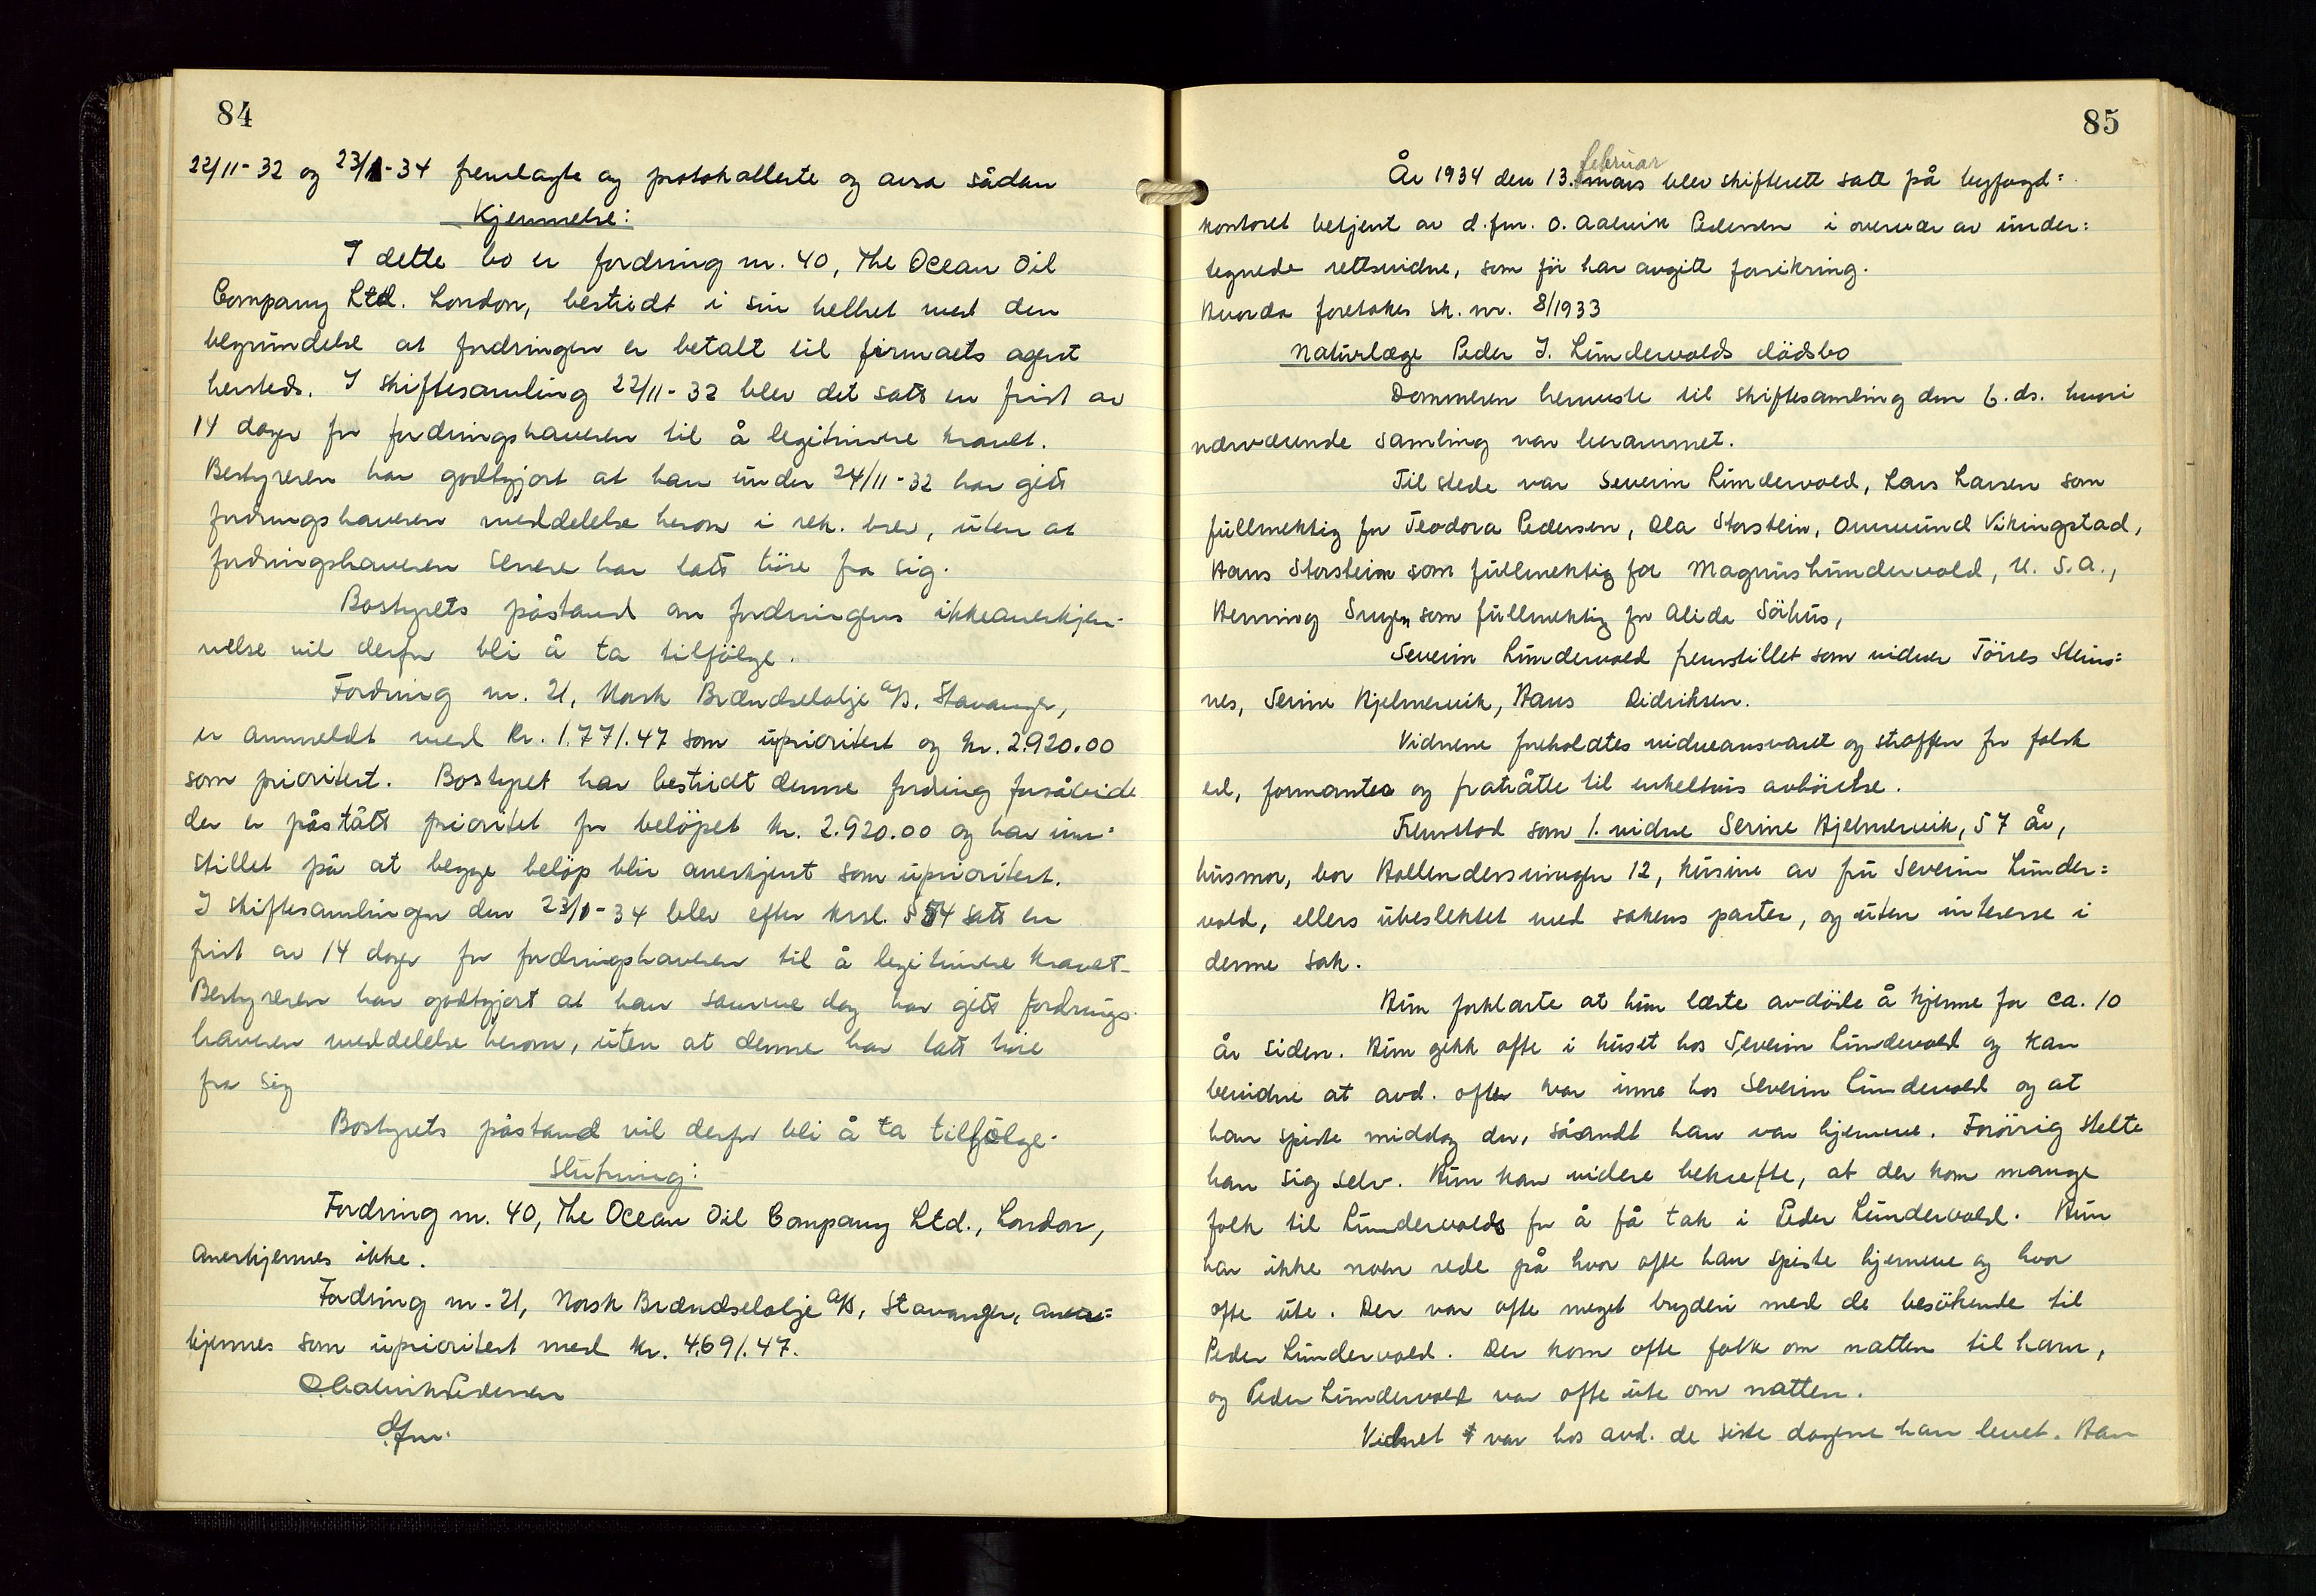 84
22/11-32 og 23/1-34 fremlagte og protokollerte og avsa sådan
Kjennelse:
I dette bo er fordring nr. 40, The Ocean Oil
Company Ltd. London, bestridt i sin helhet med den
begrundelse at fordringen er betalt til firmaets agent
hersteds. I skiftesamling 22/11-32 blev det satt en frist av
14 dager for fordringshaveren til å legitimere kravet.
Bestyreren har godtgjort at han under 24/11-32 har gitt
fordringshaveren meddelelse herom i rek. brev, uten at
fordringshaveren senere har latt höre fra sig.
Bostyrets påstand om fordringens ikkeanerkjen-
nelse vil derfor bli å ta tilfölge.
Fordring nr. 21, Norsk Brændselolje A/S, Stavanger,
er anmeldt med Kr. 1.771.47 som uprioritert og kr. 2.920.00
som prioritert. Bostyret har bestridt denne fordring forsåvidt
der er påstått prioritet for belöpet kr. 2.920.00 og har inn-
stillet på at begge belöp blir anerkjent som uprioritert.
I skiftesamlingen den 23/1-34 blev efter krsl. § 54 satt en
frist av 14 dager for fordringshaveren til å legitimere kravet-
Bestyreren har godtgjort at han samme dag har gitt fordrings-
haveren meddelelse herom, uten at denne har latt höre
fra sig
Bostyrets påstand vil derfor bli å ta tilfölge.
Slutning:
Fordring nr. 40, The Ocean Oil Company Ltd., London,
anerkjennes ikke.
Fordring nr. 21, Norsk Brændselolje A/S, Stavanger, aner=
kjennes som uprioritert med kr. 4.691.47.
O. Aalvik Pedersen
d.fm.
85
februar
År 1934 den 13. mars blev skifterett satt på byfogd=
kontoret betjent av d.fm. O. Aalvik Pedersen i overvær av under=
tegnede rettsvidne, som för har avgitt forsikring.
Hvorda foretokes sk. nr. 8/1933
Naturlæge Peder I. Lundervolds dödsbo
Dommeren henviste til skiftesamling den 6. ds. hvori
nærværende samling var berammet.
Til stede var Severin Lundervold, Lars Larsen som
fullmektig for Teodora Pedersen, Ola Storstein, Ommund Vikingstad,
Hans Storstein som fullmektig for Magnus Lundervold, U. S. A.,
Henning som fullmektig for Alida Söhus,
Severin Lundervold fremstillet som vidner Törres Steins=
nes, Serine Hjelmervik, Hans Didriksen.
Vidnene foreholdtes vidneansvaret og straffen for falsk
ed, formantes og fratråtte til enkeltvis avhörelse.
Fremstod som 1. vidne Serine Hjelmervik, 57 år,
husmor, bor 12, kusine av fru Severin Lunder=
vold, ellers ubeslektet med sakens parter, og uten interesse i
denne sak.
Hun forklarte at hun lærte avdöde å kjenne for ca. 10
år siden. Hun gikk ofte i huset hos Severin Lundervold og kan
bevidne at avd. ofte var inne hos Severin Lundervold og at
han spiste middag der, såsandt han var hjemme. Forövrig stelte
han sig selv. Hun kan videre bekrefte, at der kom mange
folk til Lundervolds for å få tak i Peder Lundervold. Hun
har ikke noen rede på hvor ofte han spiste hjemme og hvor
ofte ute. Der var ofte meget bryderi med de besökende til
Peder Lundervold. Der kom ofte folk om natten til ham,
og Peder Lundervold var ofte ute om natten.
Vidnet var hos avd. de siste dagene han levet. Han